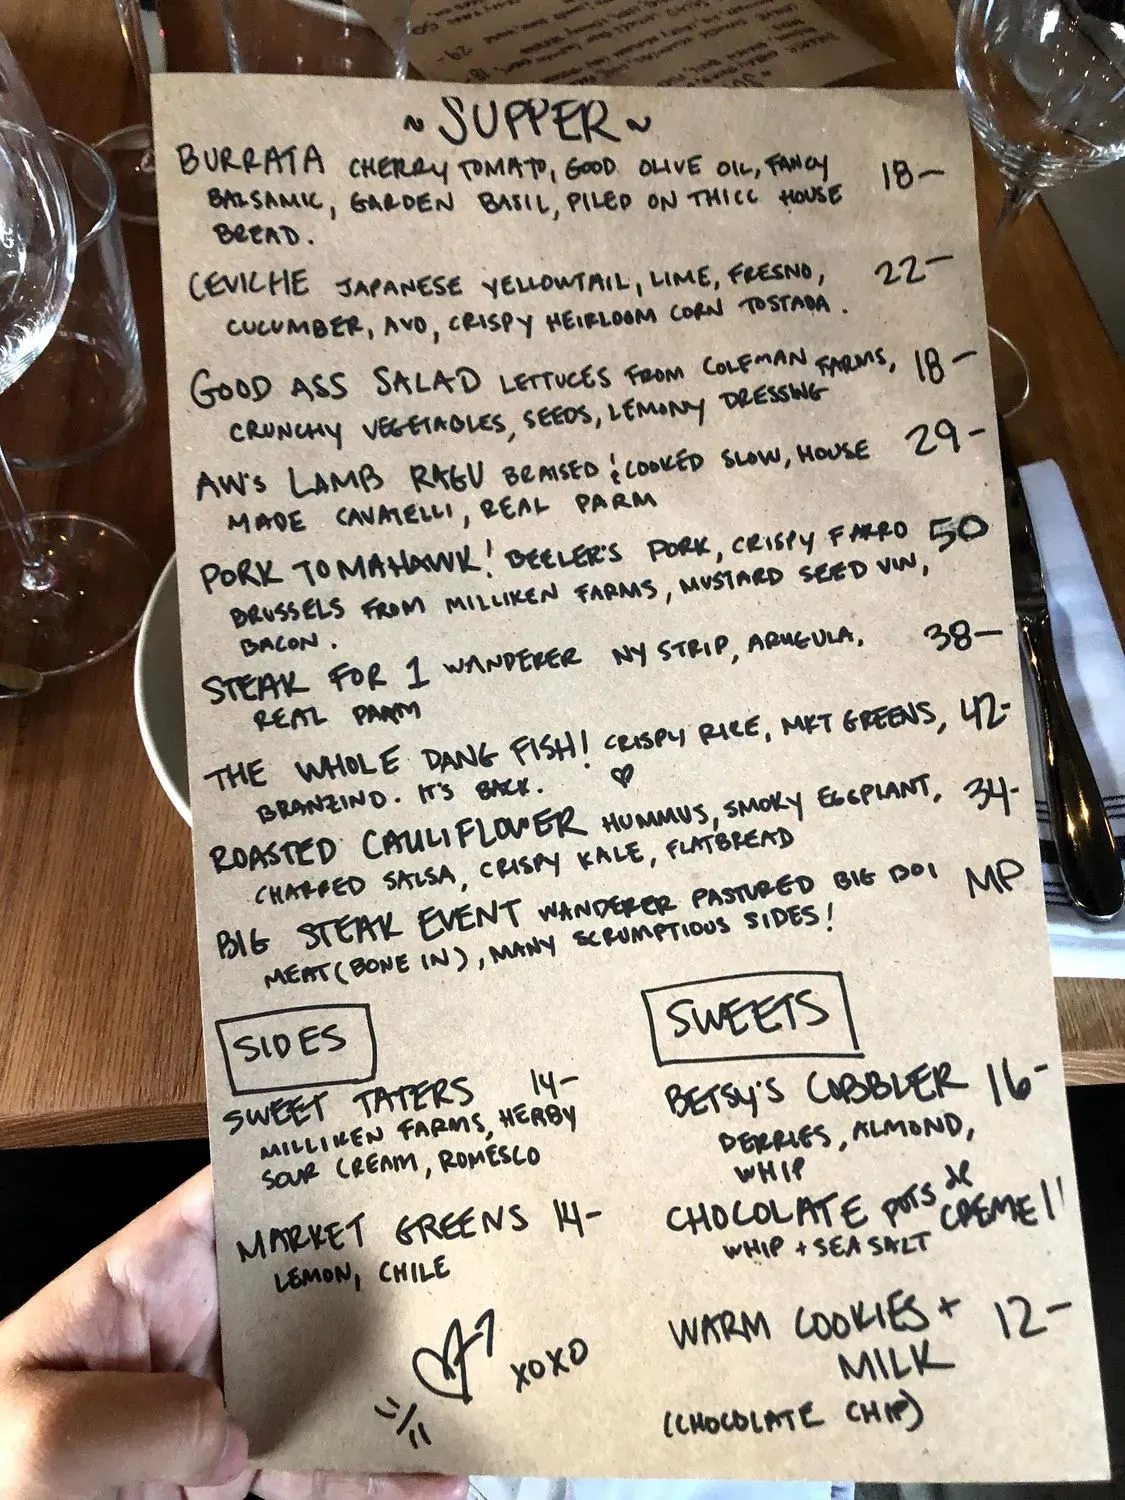 ~ SUPPER ~
BURRATA CHERRY TOMATO, GOOD OLIVE OIL, FANCY 18-
BALSAMIC, GARDEN BASIL, PILED ON THICC HOUSE
BREAD.
CEVICHE JAPANESE YELLOWTAIL, LIME, FRESNO, 22-
CUCUMBER, AVO, CRISPY HEIRLOOM CORN TOSTADA.
GOOD ASS SALAD LETTUCES FROM COLEMAN FARMS, 18-
CRUNCHY VEGETABLES, SEEDS, LEMONY DRESSING
AW's LAMB RAGU BRAISED & COOKED SLOW, HOUSE 29-
MADE CAVATELLI, REAL PARM
PORK TOMAHAWK! BEELER'S PORK, CRISPY FARRO 50
BRUSSELS FROM MILLIKEN FARMS, MUSTARD SEED VIN,
BACON.
STEAK FOR 1 WANDERER NY STRIP, ARUGULA, 38-
REAL PARM
THE WHOLE DANG FISH! CRISPY RICE, MKT GREENS, 42-
BRANZINO. IT'S BACK. ♡
ROASTED CAULIFLOWER HUMMUS, SMOKY EGGPLANT, 34-
CHARRED SALSA, CRISPY KALE, FLATBREAD
BIG STEAK EVENT WANDERER PASTURED BIG BOI MP
MEAT (BONE IN), MANY SCRUMPTIOUS SIDES!
SIDES
SWEET TATERS 14-
MILLIKEN FARMS, HERBY
SOUR CREAM, ROMESCO
MARKET GREENS 14-
LEMON, CHILE
XOXO
SWEETS
BETSY'S COBBLER 16-
BERRIES, ALMOND,
WHIP
CHOCOLATE POTS de CREME 11
WHIP + SEA SALT
WARM COOKIES + 12-
MILK
(CHOCOLATE CHIP)